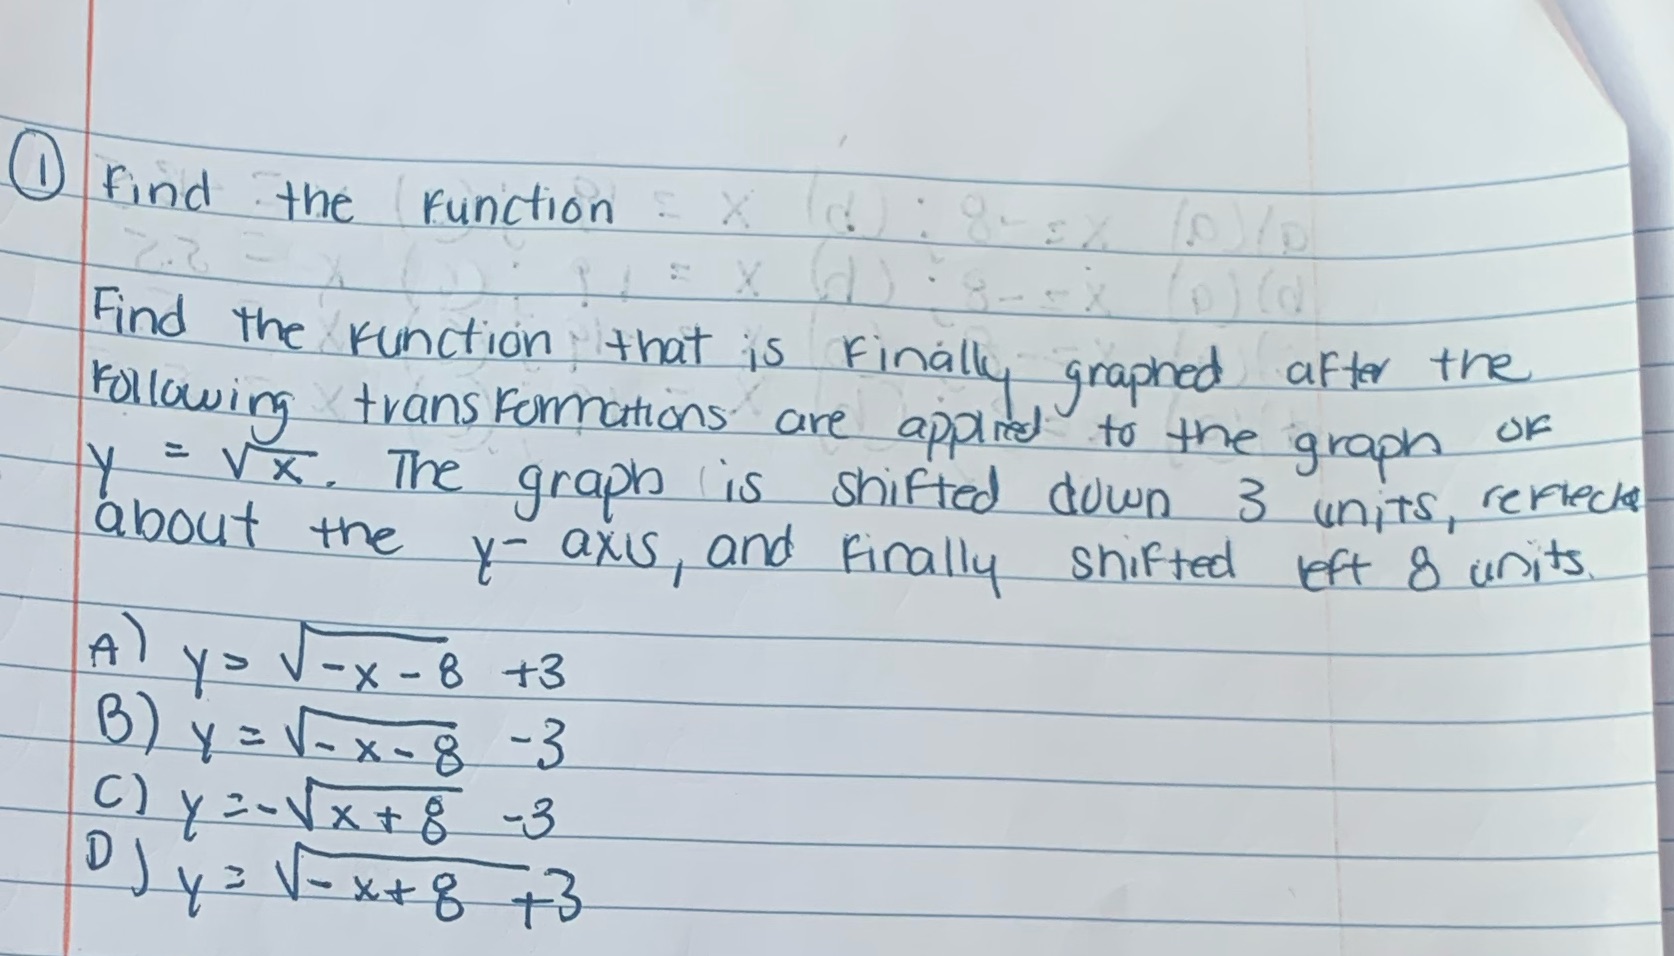 ① Find the function
Find the function that is finally graphed after the
following transformations are applied to the graph of
y = √x. The graph is shifted down 3 units, reflected
about the y-axis, and finally shifted left 8 units.
A) y = √-x-8 +3
B) y = √-x-8 -3
C) y = -√x+8 -3
D) y = √-x+8 +3